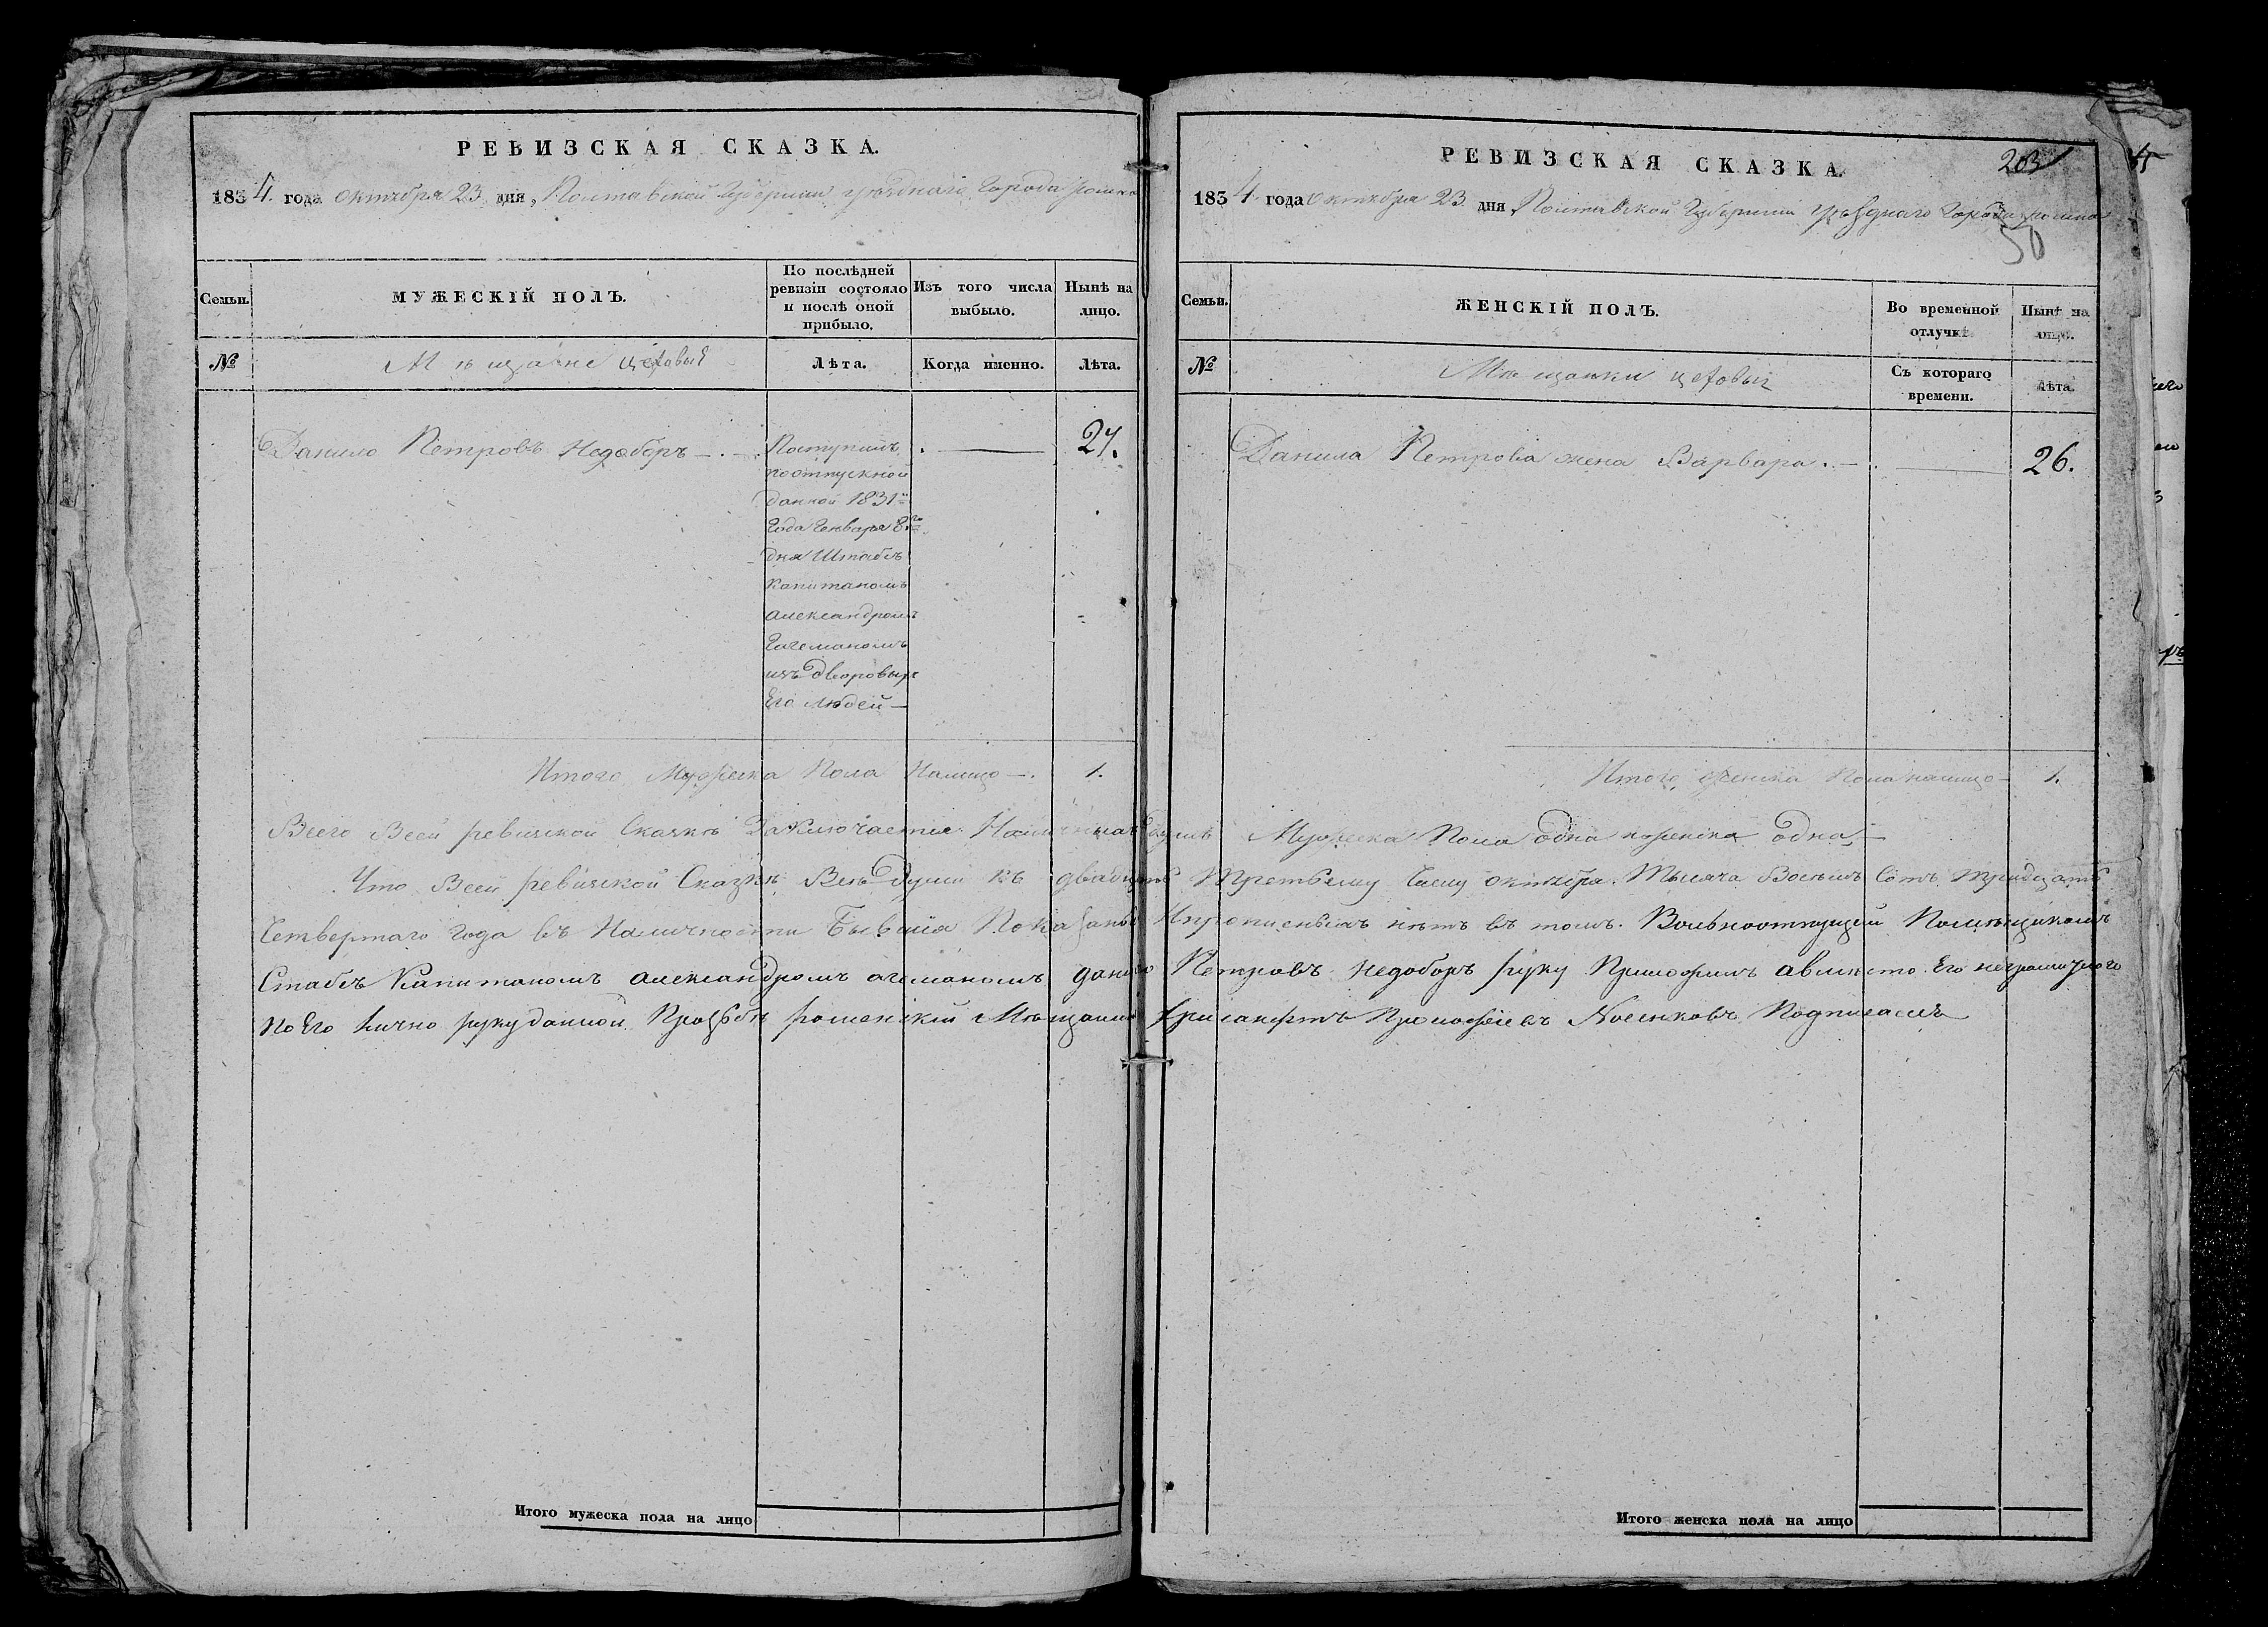 РЕВИЗСКАЯ СКАЗКА.
1834. года октября 23 дня, Полтавской Губернии уѣзднаго Города ромна
Семьи.
МУЖЕСКІЙ ПОЛЪ.
По послѣдней ревизіи состояло и послѣ оной прибыло.
Изъ того числа выбыло.
Нынѣ на лицо.
№
Мѣщане цеховыя
Лѣта.
Когда именно.
Лѣта.
Данило Петровъ Недоборъ —.—
27.
Поступилъ
поотпускной
данной 1831го
Года Генваря
дня Штабъ
Капитаномъ
александромъ
изъ дворовыхъ
Его людей —
Итого Мужеска Пола Налицо —. 1.
РЕВИЗСКАЯ СКАЗКА.
203
1834 года октября 23 дня Полтавской Губернии уѣзднаго Города ромна
50
Семьи.
ЖЕНСКІЙ ПОЛЪ.
Во временной отлучкѣ
Нынѣ на лицо.
№
Мѣщанки цеховыя
Съ котораго времени.
Лѣта.
Данила Петрова жена Варвара. — 26.
Итого женска Пола налицо — 1.
Всего Всей ревизской Сказкѣ Заключается Наличныхъ Душъ Мужеска Пола одна иженска одна —
Что Всей ревизской Сказкѣ Всѣ Души къ двадцать третьему Числу октября Тысяча Восемь Сотъ тридцать
Четвертаго Года въ Наличности Бывшия Показаны Ипрописныхъ нѣтъ въ томъ. Вольноотпущеный Помѣщикомъ
Стабсъ Капитаномъ александромъ данило Петровъ недоборъ руку Приложилъ авмѣсто Его неграмотного
по Его лично рукуданной Прозбѣ роменский Мѣщанинъ Подписалъ
Итого мужеска пола на лицо
Итого женска пола на лицо